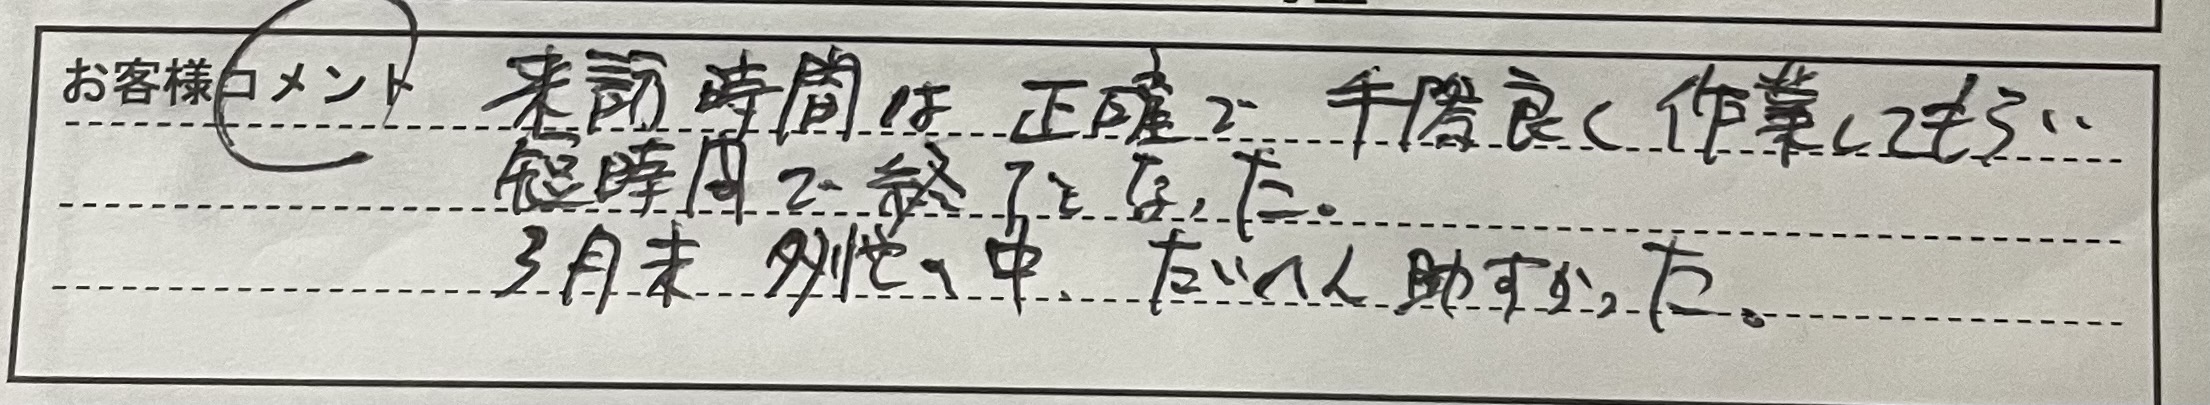 お客様コメント
来訪時間は正確で手際良く作業してもらい
短時間で終了となった。
3月末多忙の中、たいへん助すかった。